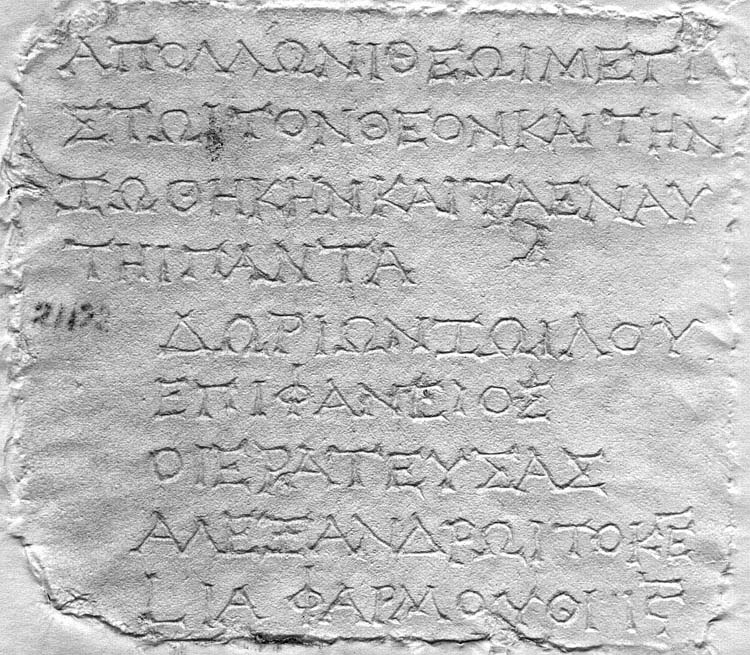 ΑΠΟΛΛΩΝΙΘΕΩΙΜΕΓΙ
ΣΤΩΙΤΟΝΘΕΟΝΚΑΙΤΗΝ
ΖΩΘΗΚΗΝΚΑΙΤΑΕΝΑΥ
ΤΗΙΠΑΝΤΑ
ΔΩΡΙΩΝΖΩΙΛΟΥ
ΕΠΙΦΑΝΕΙΟΣ
ΟΙΕΡΑΤΕΥΣΑΣ
ΑΛΕΞΑΝΔΡΩΙΤΟΚΕ
LΙΑ ΦΑΡΜΟΥΘΙ